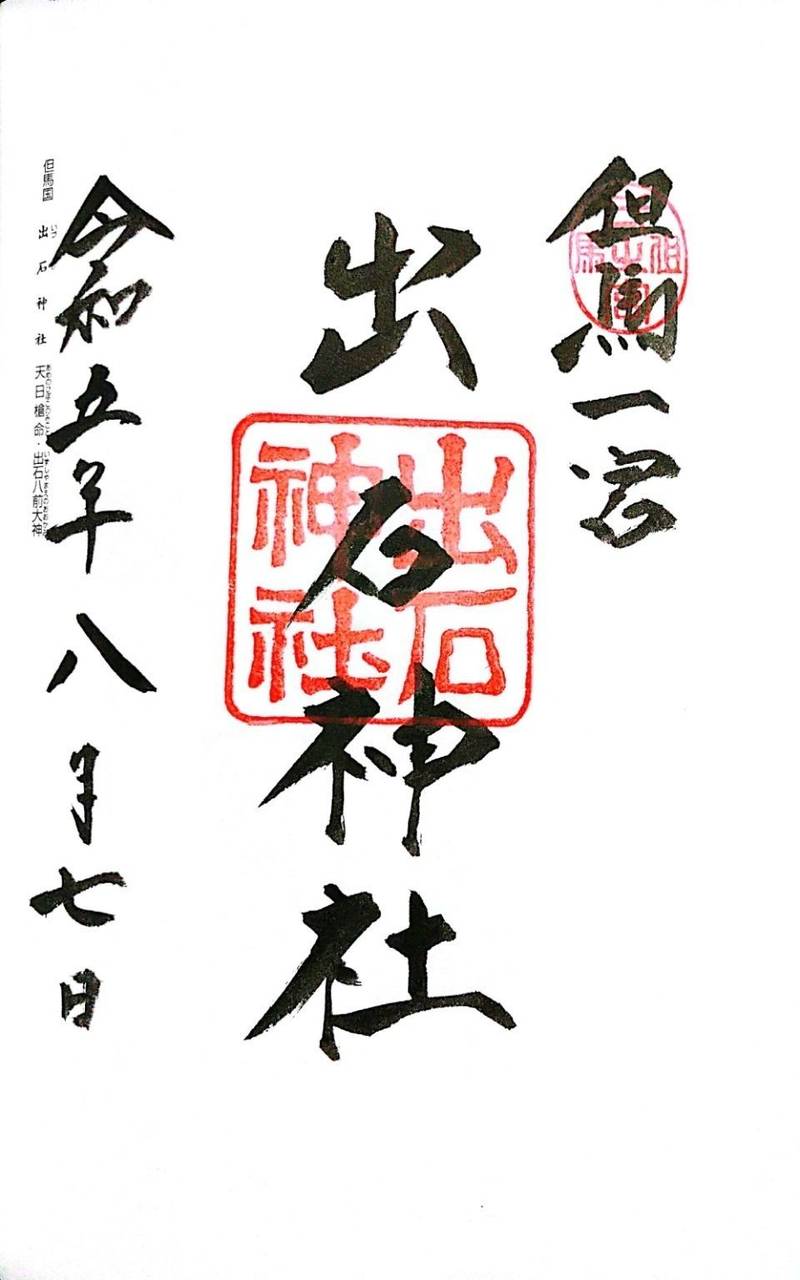 但馬一宮
但馬一宮
出石神社
出石
神社
令和五年八月七日
但馬国 出石神社 天日槍命・出石八前大神